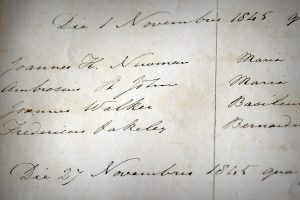 Die 1 Novembris 1845 qu
Joannes H. Newman Maria
Ambrosius St John Maria
Joannes Walker Basilius
Fredericus Oakeley Bernardi
Die 27 Novembris 1845 qua